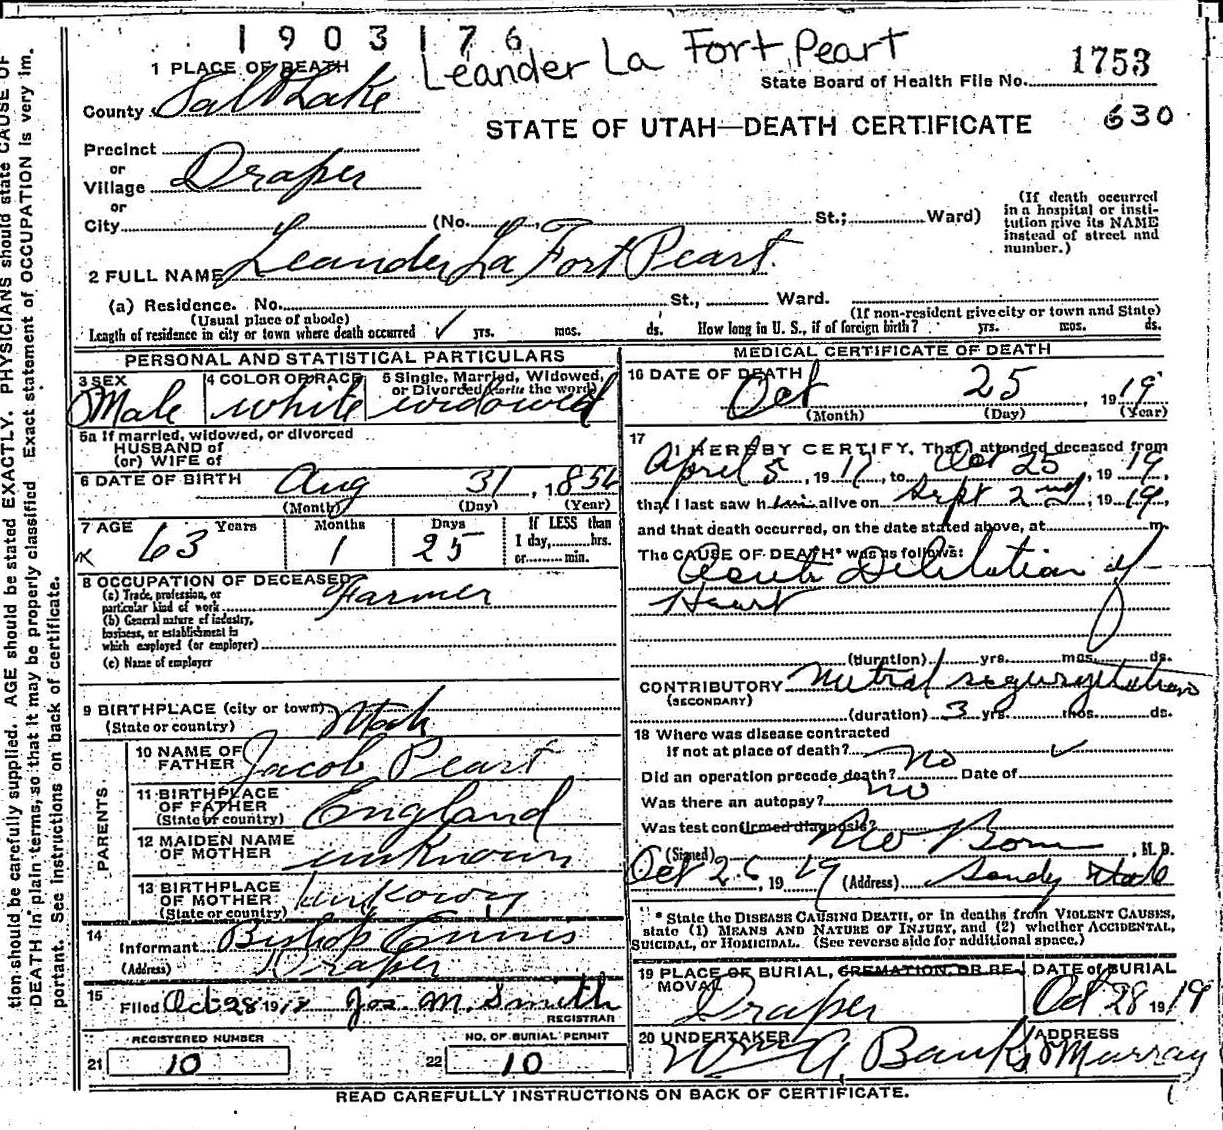 1903176
Leander La Fort Peart
1753
State Board of Health File No.
1 PLACE OF DEATH
County Salt Lake
STATE OF UTAH—DEATH CERTIFICATE
630
Precinct
or
Village Draper
or
City (No. St.; Ward)
(If death occurred in a hospital or institution give its NAME instead of street and number.)
2 FULL NAME Leander La Fort Peart
(a) Residence. No. St., Ward.
(Usual place of abode)
(If non-resident give city or town and State)
Length of residence in city or town where death occurred yrs. mos. ds. How long in U. S., if of foreign birth? yrs. mos. ds.
PERSONAL AND STATISTICAL PARTICULARS
3 SEX Male
4 COLOR OR RACE white
5 Single, Married, Widowed, or Divorced (write the word) widowed
5a If married, widowed, or divorced
HUSBAND of
(or) WIFE of
6 DATE OF BIRTH Aug 31, 1856
(Month) (Day) (Year)
7 AGE Years Months Days
63 1 25
If LESS than
1 day, hrs.
or min.
8 OCCUPATION OF DECEASED
(a) Trade, profession, or particular kind of work Farmer
(b) General nature of industry, business, or establishment in which employed (or employer)
(c) Name of employer
9 BIRTHPLACE (city or town) Utah
(State or country)
PARENTS
10 NAME OF FATHER Jacob Peart
11 BIRTHPLACE OF FATHER England
(State or country)
12 MAIDEN NAME OF MOTHER unknown
13 BIRTHPLACE OF MOTHER unkown
(State or country)
14
Informant Bishop Ennis
(Address) Draper
15
Filed Oct 28 19 Jos. M. Smith
REGISTRAR
REGISTERED NUMBER
21 10
NO. OF BURIAL PERMIT
22 10
MEDICAL CERTIFICATE OF DEATH
16 DATE OF DEATH
Oct 25, 1919
(Month) (Day) (Year)
17
I HEREBY CERTIFY, That I attended deceased from
April 5, 1917, to Oct 25, 1919,
that I last saw him alive on Sept 2nd, 1919,
and that death occurred, on the date stated above, at m.
The CAUSE OF DEATH* was as follows:
Acute Dilitation of
Heart
(duration) yrs. mos. ds.
CONTRIBUTORY Mitral regurgitation
(SECONDARY)
(duration) 3 yrs. mos. ds.
18 Where was disease contracted
if not at place of death?
Did an operation precede death? no Date of
Was there an autopsy? no
Was test confirmed diagnosis?
(Signed) M. D.
Oct 26, 1919 (Address) Sandy Utah
* State the DISEASE CAUSING DEATH, or in deaths from VIOLENT CAUSES,
state (1) MEANS AND NATURE OF INJURY, and (2) whether ACCIDENTAL,
SUICIDAL, or HOMICIDAL. (See reverse side for additional space.)
19 PLACE OF BURIAL, CREMATION, OR REMOVAL
Draper
DATE of BURIAL
Oct 28 1919
20 UNDERTAKER
Wm A. Banks
ADDRESS
Murray
READ CAREFULLY INSTRUCTIONS ON BACK OF CERTIFICATE.
tion should be carefully supplied. AGE should be stated EXACTLY. PHYSICIANS should state CAUSE OF
DEATH in plain terms, so that it may be properly classified. Exact statement of OCCUPATION is very im.
portant. See instructions on back of certificate.